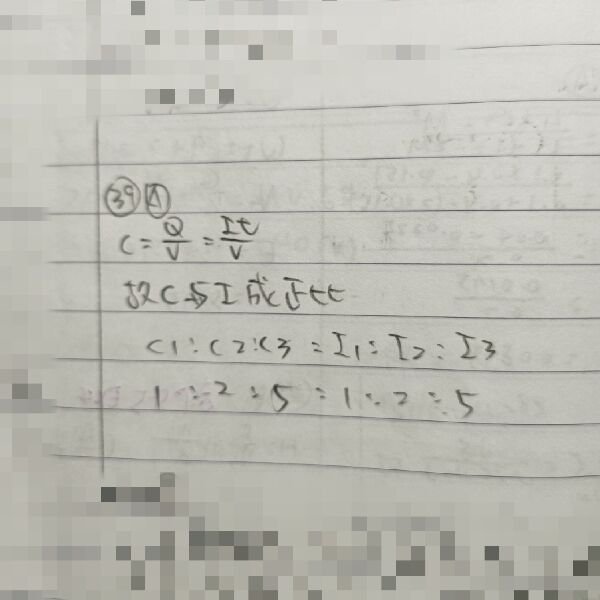 39 A
C = Q/V = It/V
故C与I成正比
C1 : C2 : C3 = I1 : I2 : I3
1 : 2 : 5 = 1 : 2 : 5